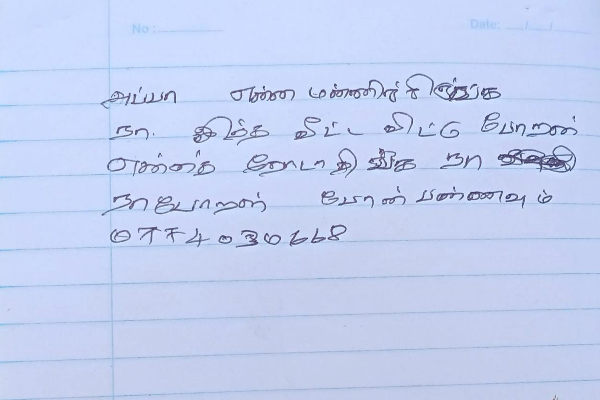 No :
Date: / /
அப்பா என்ன மன்னிச்சிருங்க
நா. இந்த வீட்ட விட்டு போறன்
என்னத் தேடாதிங்க நா
நா போறன் போன் பண்ணவும்
0774030668